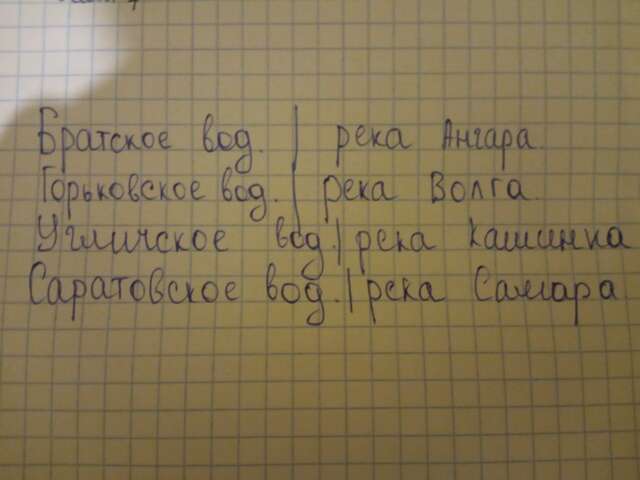 Братское вод. | река Ангара.
Горьковское вод. | река Волга.
Угличское вод. | река Кашинка
Саратовское вод. | река Самара